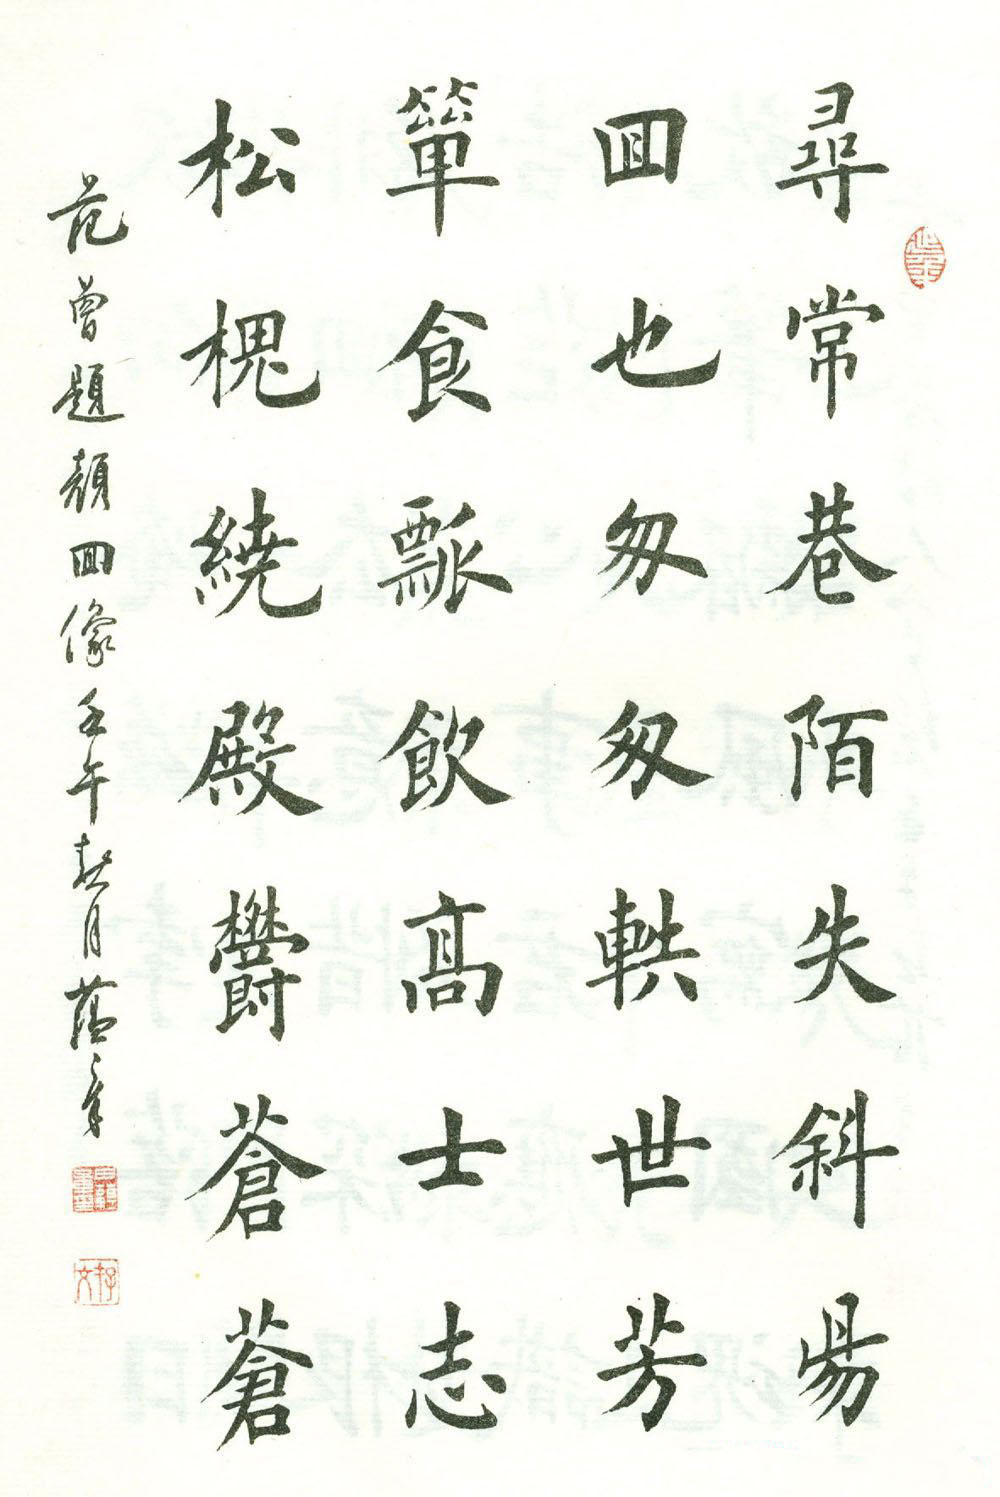 尋常巷陌失斜昜
囬也匆匆軼世芳
簞食瓢飲髙士志
松槐繞殿欝蒼蒼
范曾題顏囬像壬午月